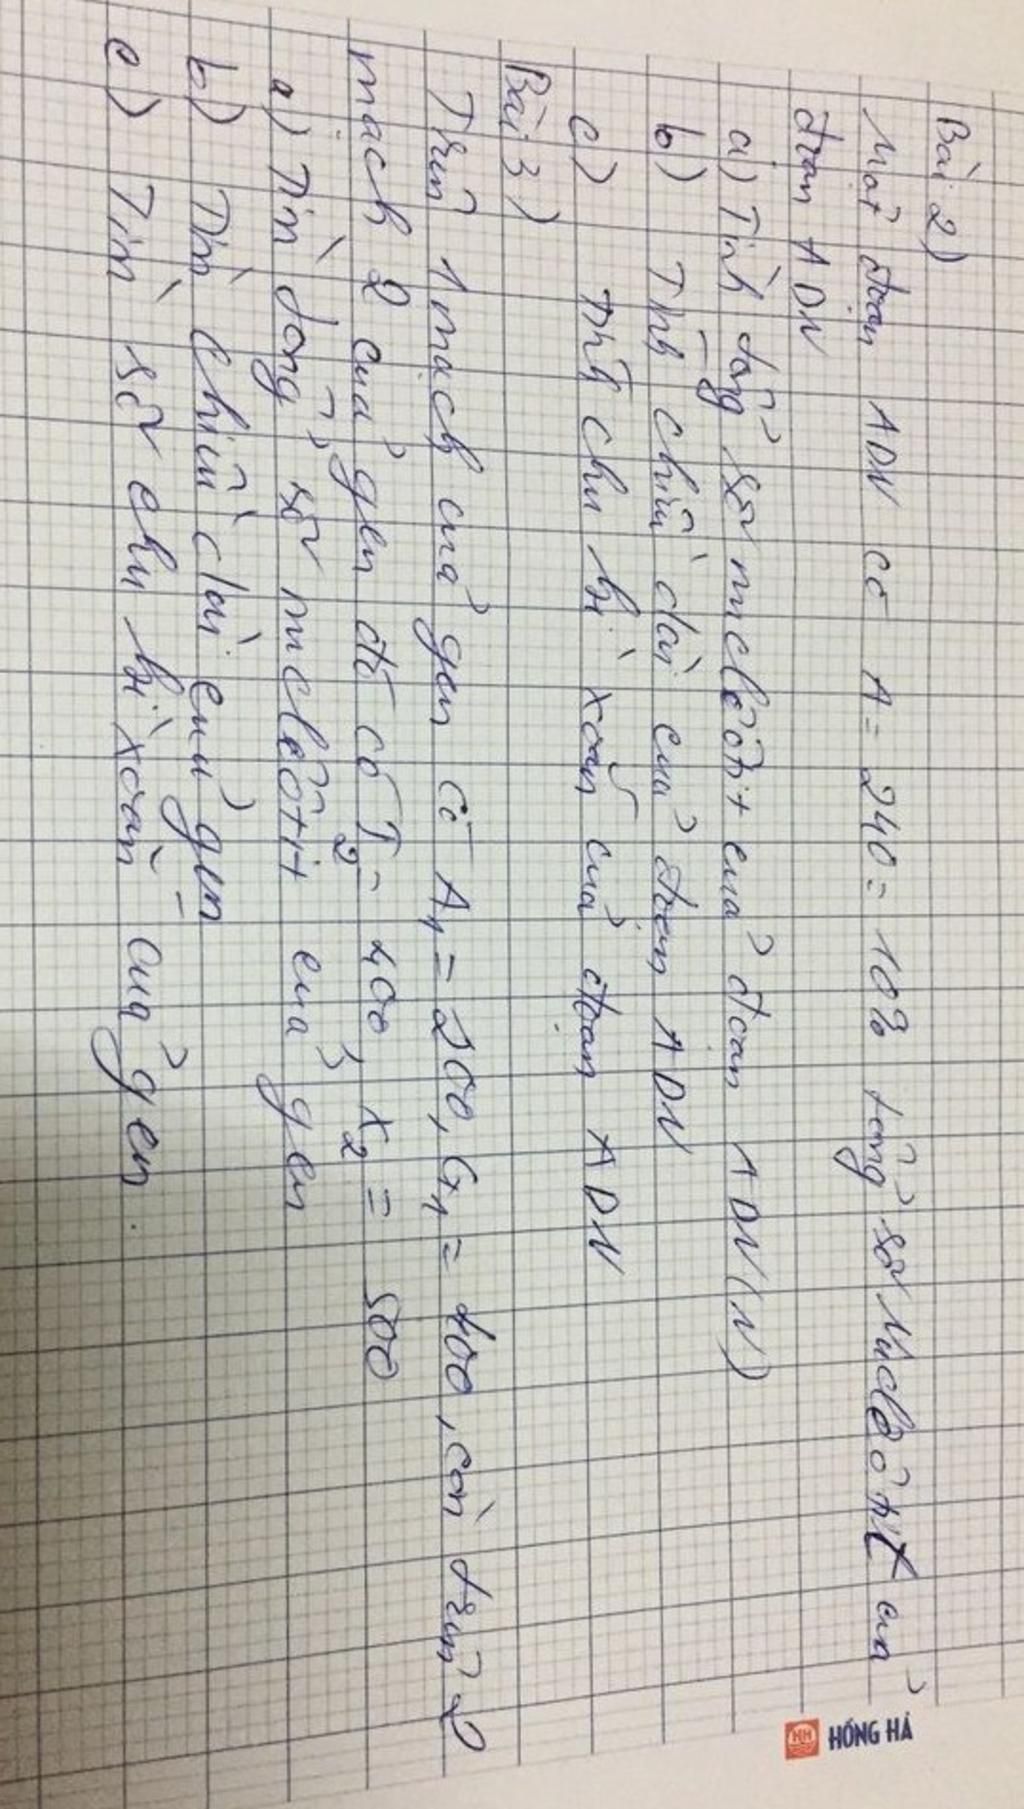 Bài 2)
Một đoạn ADN có A = 240 = 10% tổng số Nuclêôtit của
đoạn ADN
a) Tính tổng số nuclêôtit của đoạn ADN (N)
b) Tính chiều dài của đoạn ADN
c) Tính chu kì xoắn của đoạn ADN
Bài 3)
Trên 1 mạch của gen có A₁ = 200, G₁ = 400, còn trên 2
mạch 2 của gen đó có T₂ = 400, X₂ = 500
a) Tín tổng số nuclêôtit của gen
b) Tín chiều dài của gen
c) Tín số chu kì xoắn của gen.
HỒNG HÀ